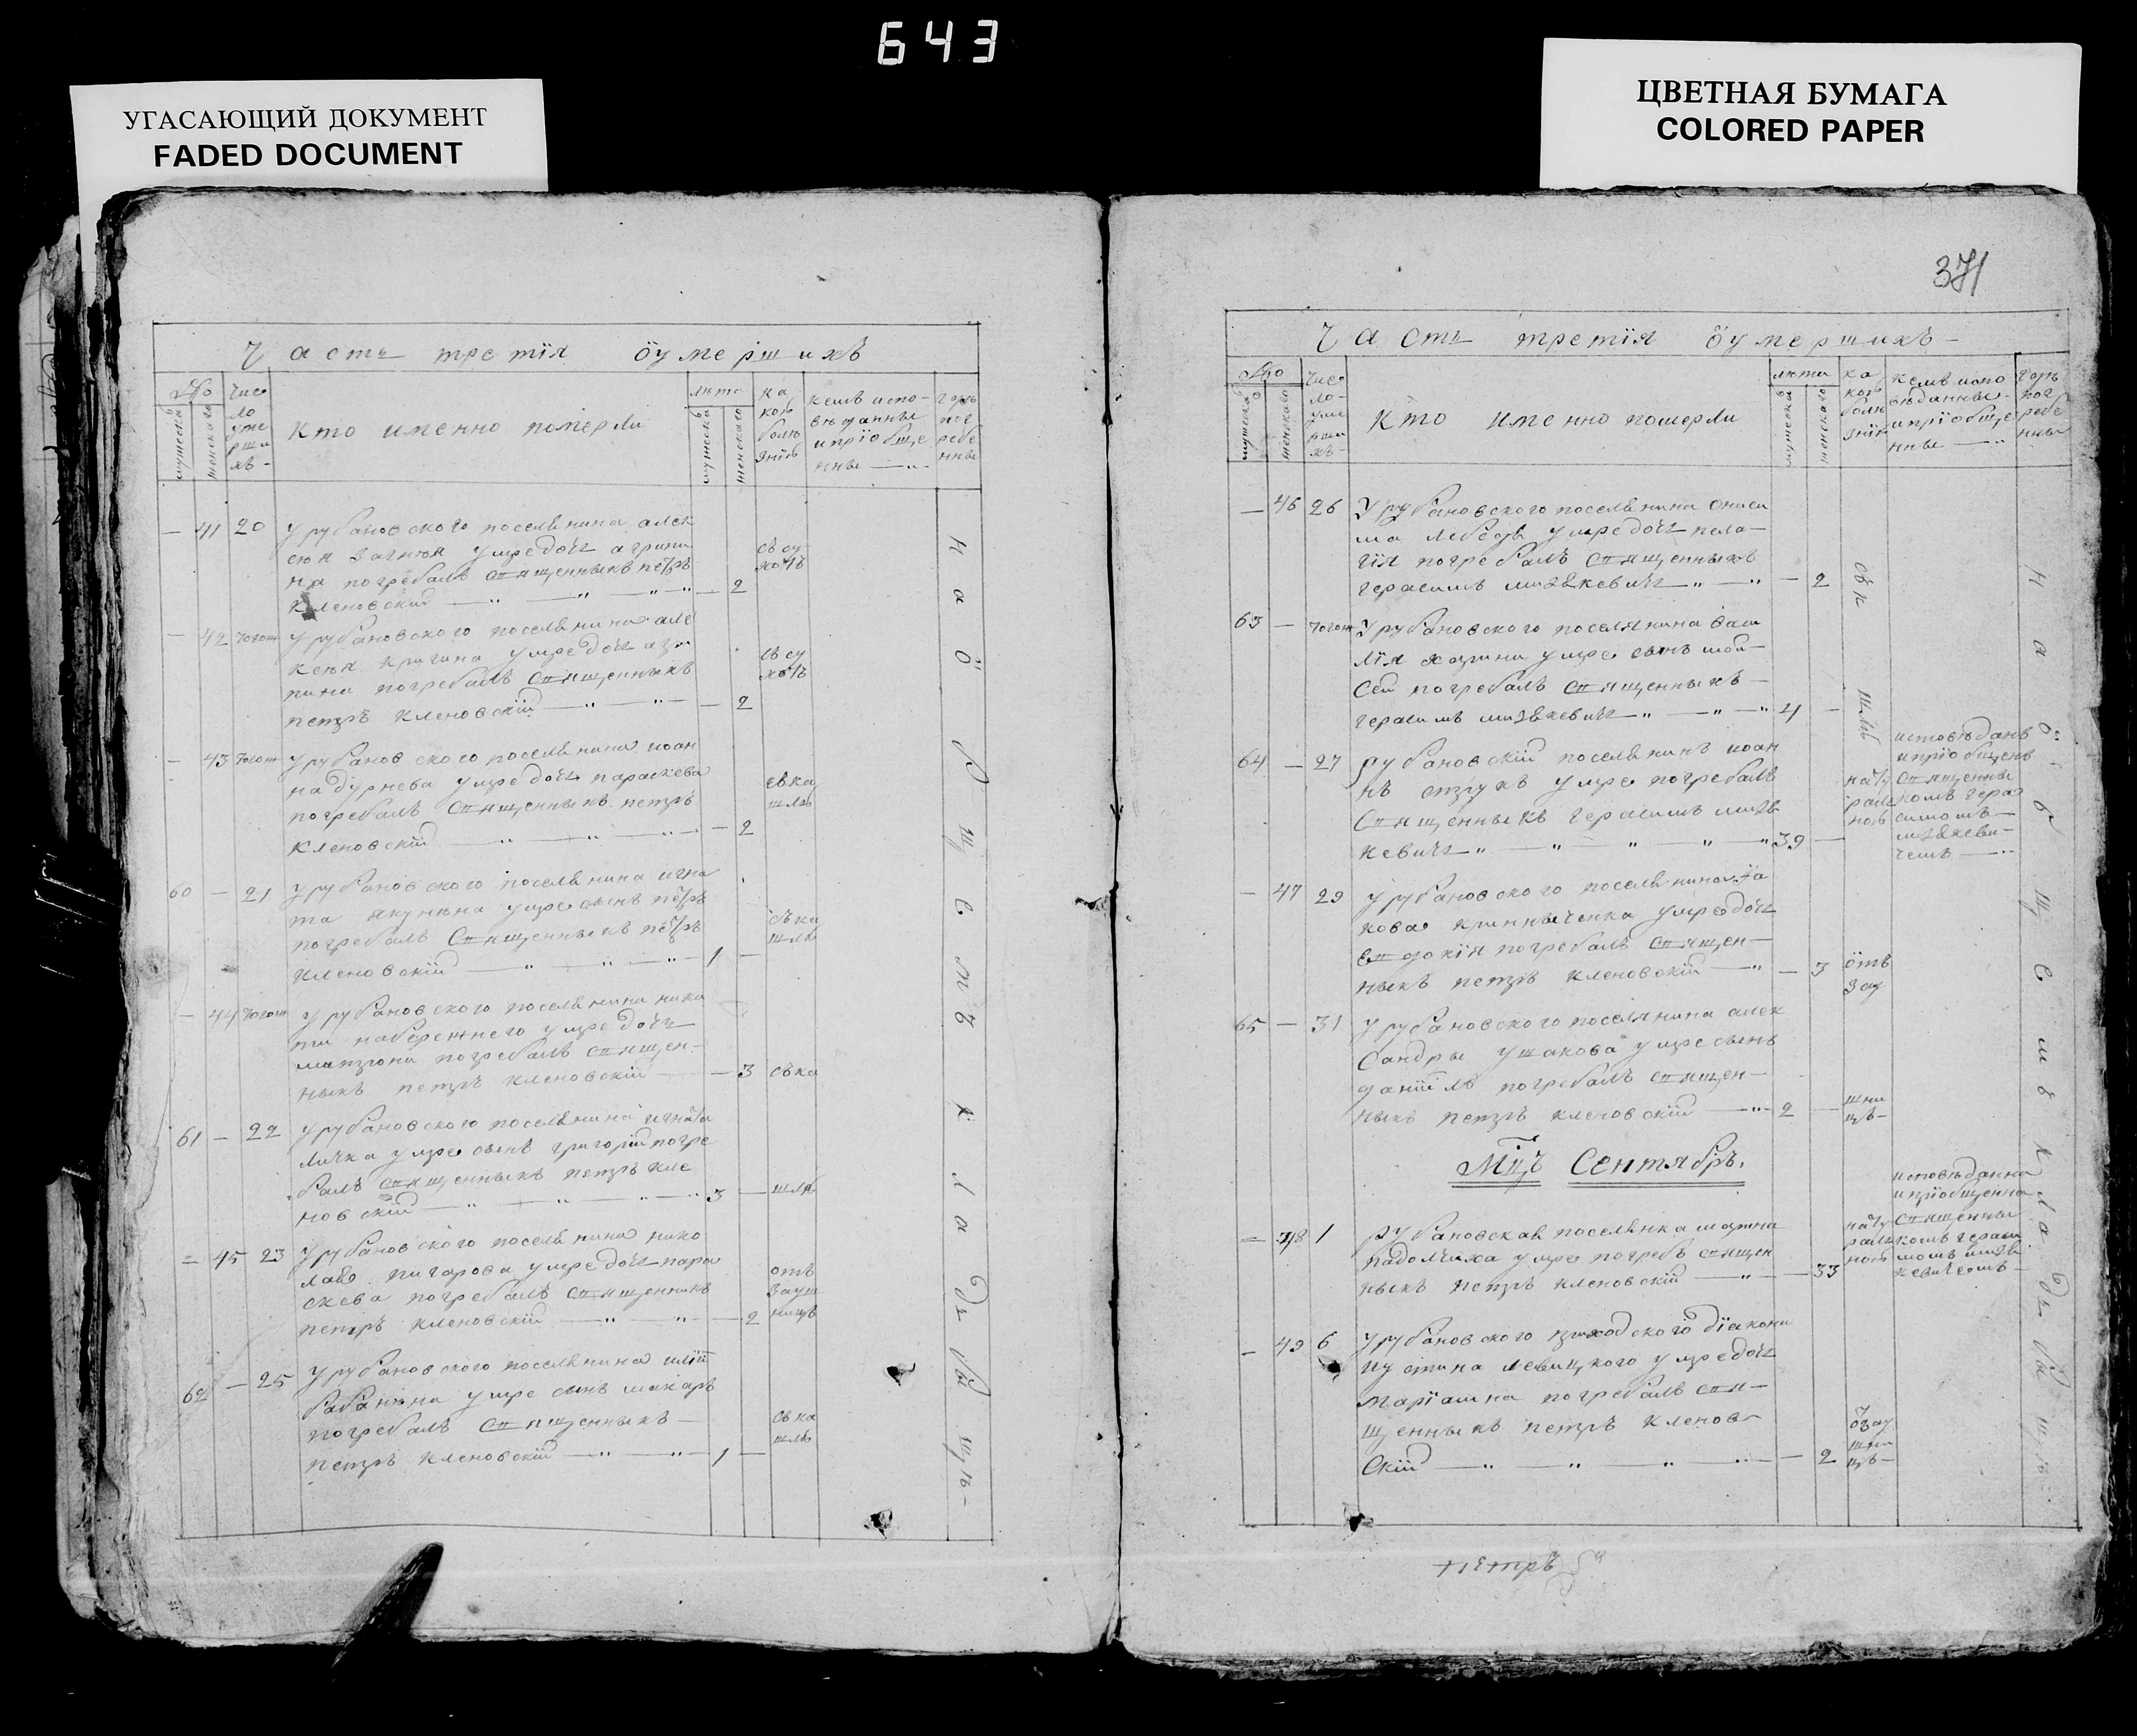 643
УГАСАЮЩИЙ ДОКУМЕНТ
FADED DOCUMENT
ЦВЕТНАЯ БУМАГА
COLORED PAPER
371
Часть третїя ѻумершихъ
№ Число умершихъ
мужеска женскаго
Кто именно померли
лѣта
мужеска женскаго
Какою болѣзнїю
кемъ исповѣданны и прїобщенны
где погребенны
— 41 20 У рубановского поселѣнина алек
сѣя умре дочь агрипи
на погребалъ священныкъ петръ
кленовскїй — 2
сѣ су
хотъ
— 42 тогож У рубановского поселѣнина але
ксѣя кригина умре дочь
пина погребалъ священныкъ
петръ кленовскїй — 2
сѣ су
хотъ
— 43 тогож У рубановского поселѣнина иоан
на дурнева умре дочь параскева
погребалъ священныкъ петръ
кленовскїй — 2
сѣка
шлю
60 — 21 У рубановского поселѣнина игна
та якунина умре сынъ петръ
погребалъ священныкъ петръ
кленовскїй 1 —
сѣка
шлю
— 44 тогож У рубановского поселѣнина ники
ти набережнего умре дочь
матрона погребалъ священ-
ныкъ петръ кленовскїй — 3 сѣка
61 — 22 У рубановского поселѣнина игната
личка умре сынъ григорїй погре
балъ священныкъ петръ кле
новскїй 3 — шлю
— 45 23 У рубановского поселѣнина нико
лаю пигарова умре дочь пара
скева погребалъ священныкъ
петръ кленовскїй — 2
отъ
зауш
ницѣ
62 — 25 У рубановского поселѣнина
умре сынъ макаръ
погребалъ священныкъ —
петръ кленовскїй 1 —
сѣка
шлю
На ѻбщемъ кладбищѣ-
Часть третїя ѻумершихъ-
№ Число умершихъ-
мужеска женскаго
Кто именно померли
лѣта
мужеска женскаго
Какою болѣзнїю
кемъ исповѣданны и прїобщенны
где погребенны
— 46 26 У рубановского поселѣнина ониси
ма лебедя умре дочь пела-
гїя погребалъ священныкъ
герасимъ — 2
63 — тогож У рубановского поселянина васи
лїя харина умре сынъ мои-
сей погребалъ священныкъ —
герасимъ 4 —
сѣкашлю
64 — 27 Рубановскїй поселѣнинъ иоан
нъ струкъ умре погребалъ
священныкъ герасимъ
39 —
натуральною
исповѣданъ
и прїобщенъ
священны
комъ гера
симомъ
— 47 29 У рубановского поселѣнина іа
кова кринныченка умре дочь
евдокїя погребалъ священ-
ныкъ петръ кленовскїй — 3
ѻтъ
зау
65 — 31 У рубановского поселянина алек
сандры ушакова умре сынъ
данїилъ погребалъ священ-
ныкъ петръ кленовскїй 2 —
шни
цѣ-
Мцъ Сентябръ.
— 48 1 Рубановская поселѣнка марина
падолчиха умре погребъ священ
ныкъ петръ кленовскїй — 33
натуральною
исповѣданна
и прїобщенна
священны
комъ гераси
момъ
— 49 6 У рубановского приходского дїакона
иустина левицкого умре дочь
марїамна погребалъ свя-
щенныкъ петръ кленов-
скїй — 2
ѻзау
шни
цѣ-
На ѻбщемъ кладбищѣ
петръ